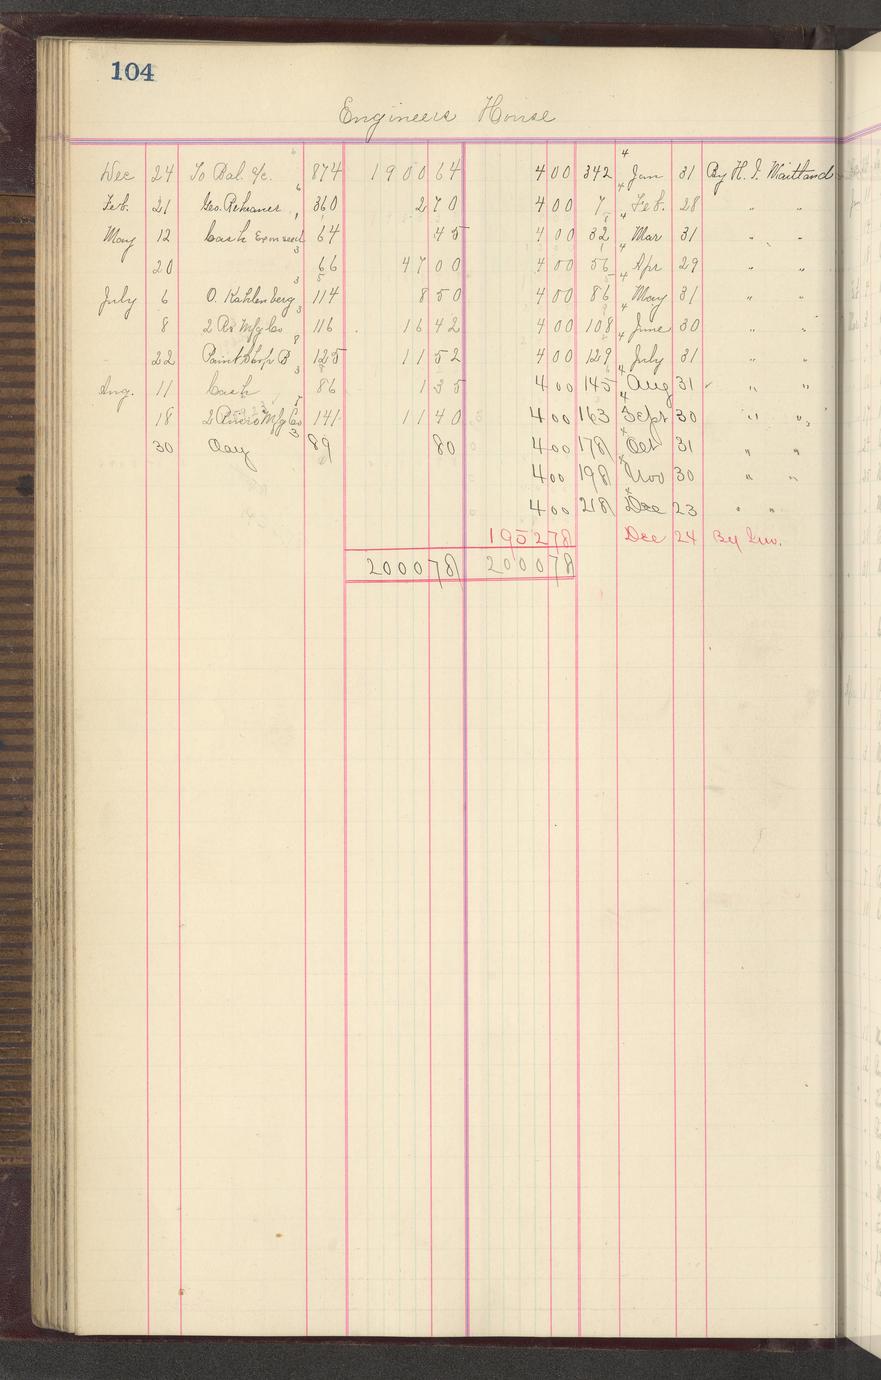 104
Engineers House
Dec 24 To Bal. a/c. 874 1900 64 4 00 342 4 Jan 31 By H. I. Maitland
Feb. 21 Geo. 360 2 70 4 00 7 4 Feb. 28 " "
May 12 Cash 64 45 4 00 32 4 Mar 31 " "
20 66 47 00 4 00 56 4 Apr 29 " "
July 6 O. Kahlenberg 114 8 50 4 00 86 4 May 31 " "
8 2 Rs Mfg Co 116 16 42 4 00 108 4 June 30 " "
22 Paint Shop B 125 11 52 4 00 129 4 July 31 " "
Aug. 11 Cash 86 1 35 4 00 145 Aug 31 " "
18 2 Rivers Mfg Co 141 11 40 4 00 163 Sept 30 " "
30 Clay 89 80 4 00 178 Oct 31 " "
4 00 198 Nov 30 " "
4 00 218 Dec 23 " "
1952 78 Dec 24 By Inv.
2000 78 2000 78